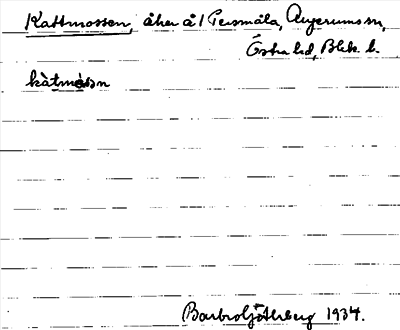 Kattmossen, åker å 1 Persmåla, Augerums sn,
Östra hd, Blek. l.
kàtmósn
Barbro Götherberg 1934.